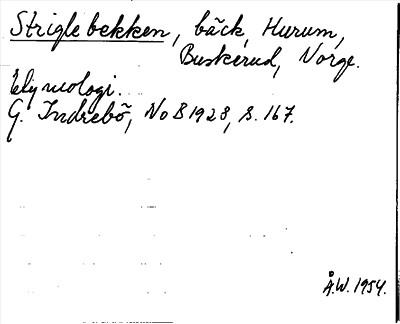 Striglebekken, bäck, Hurum,
Buskerud, Norge.
Etymologi.
G. Indrebö, NoB 1928, s. 167.
Å.W. 1954.